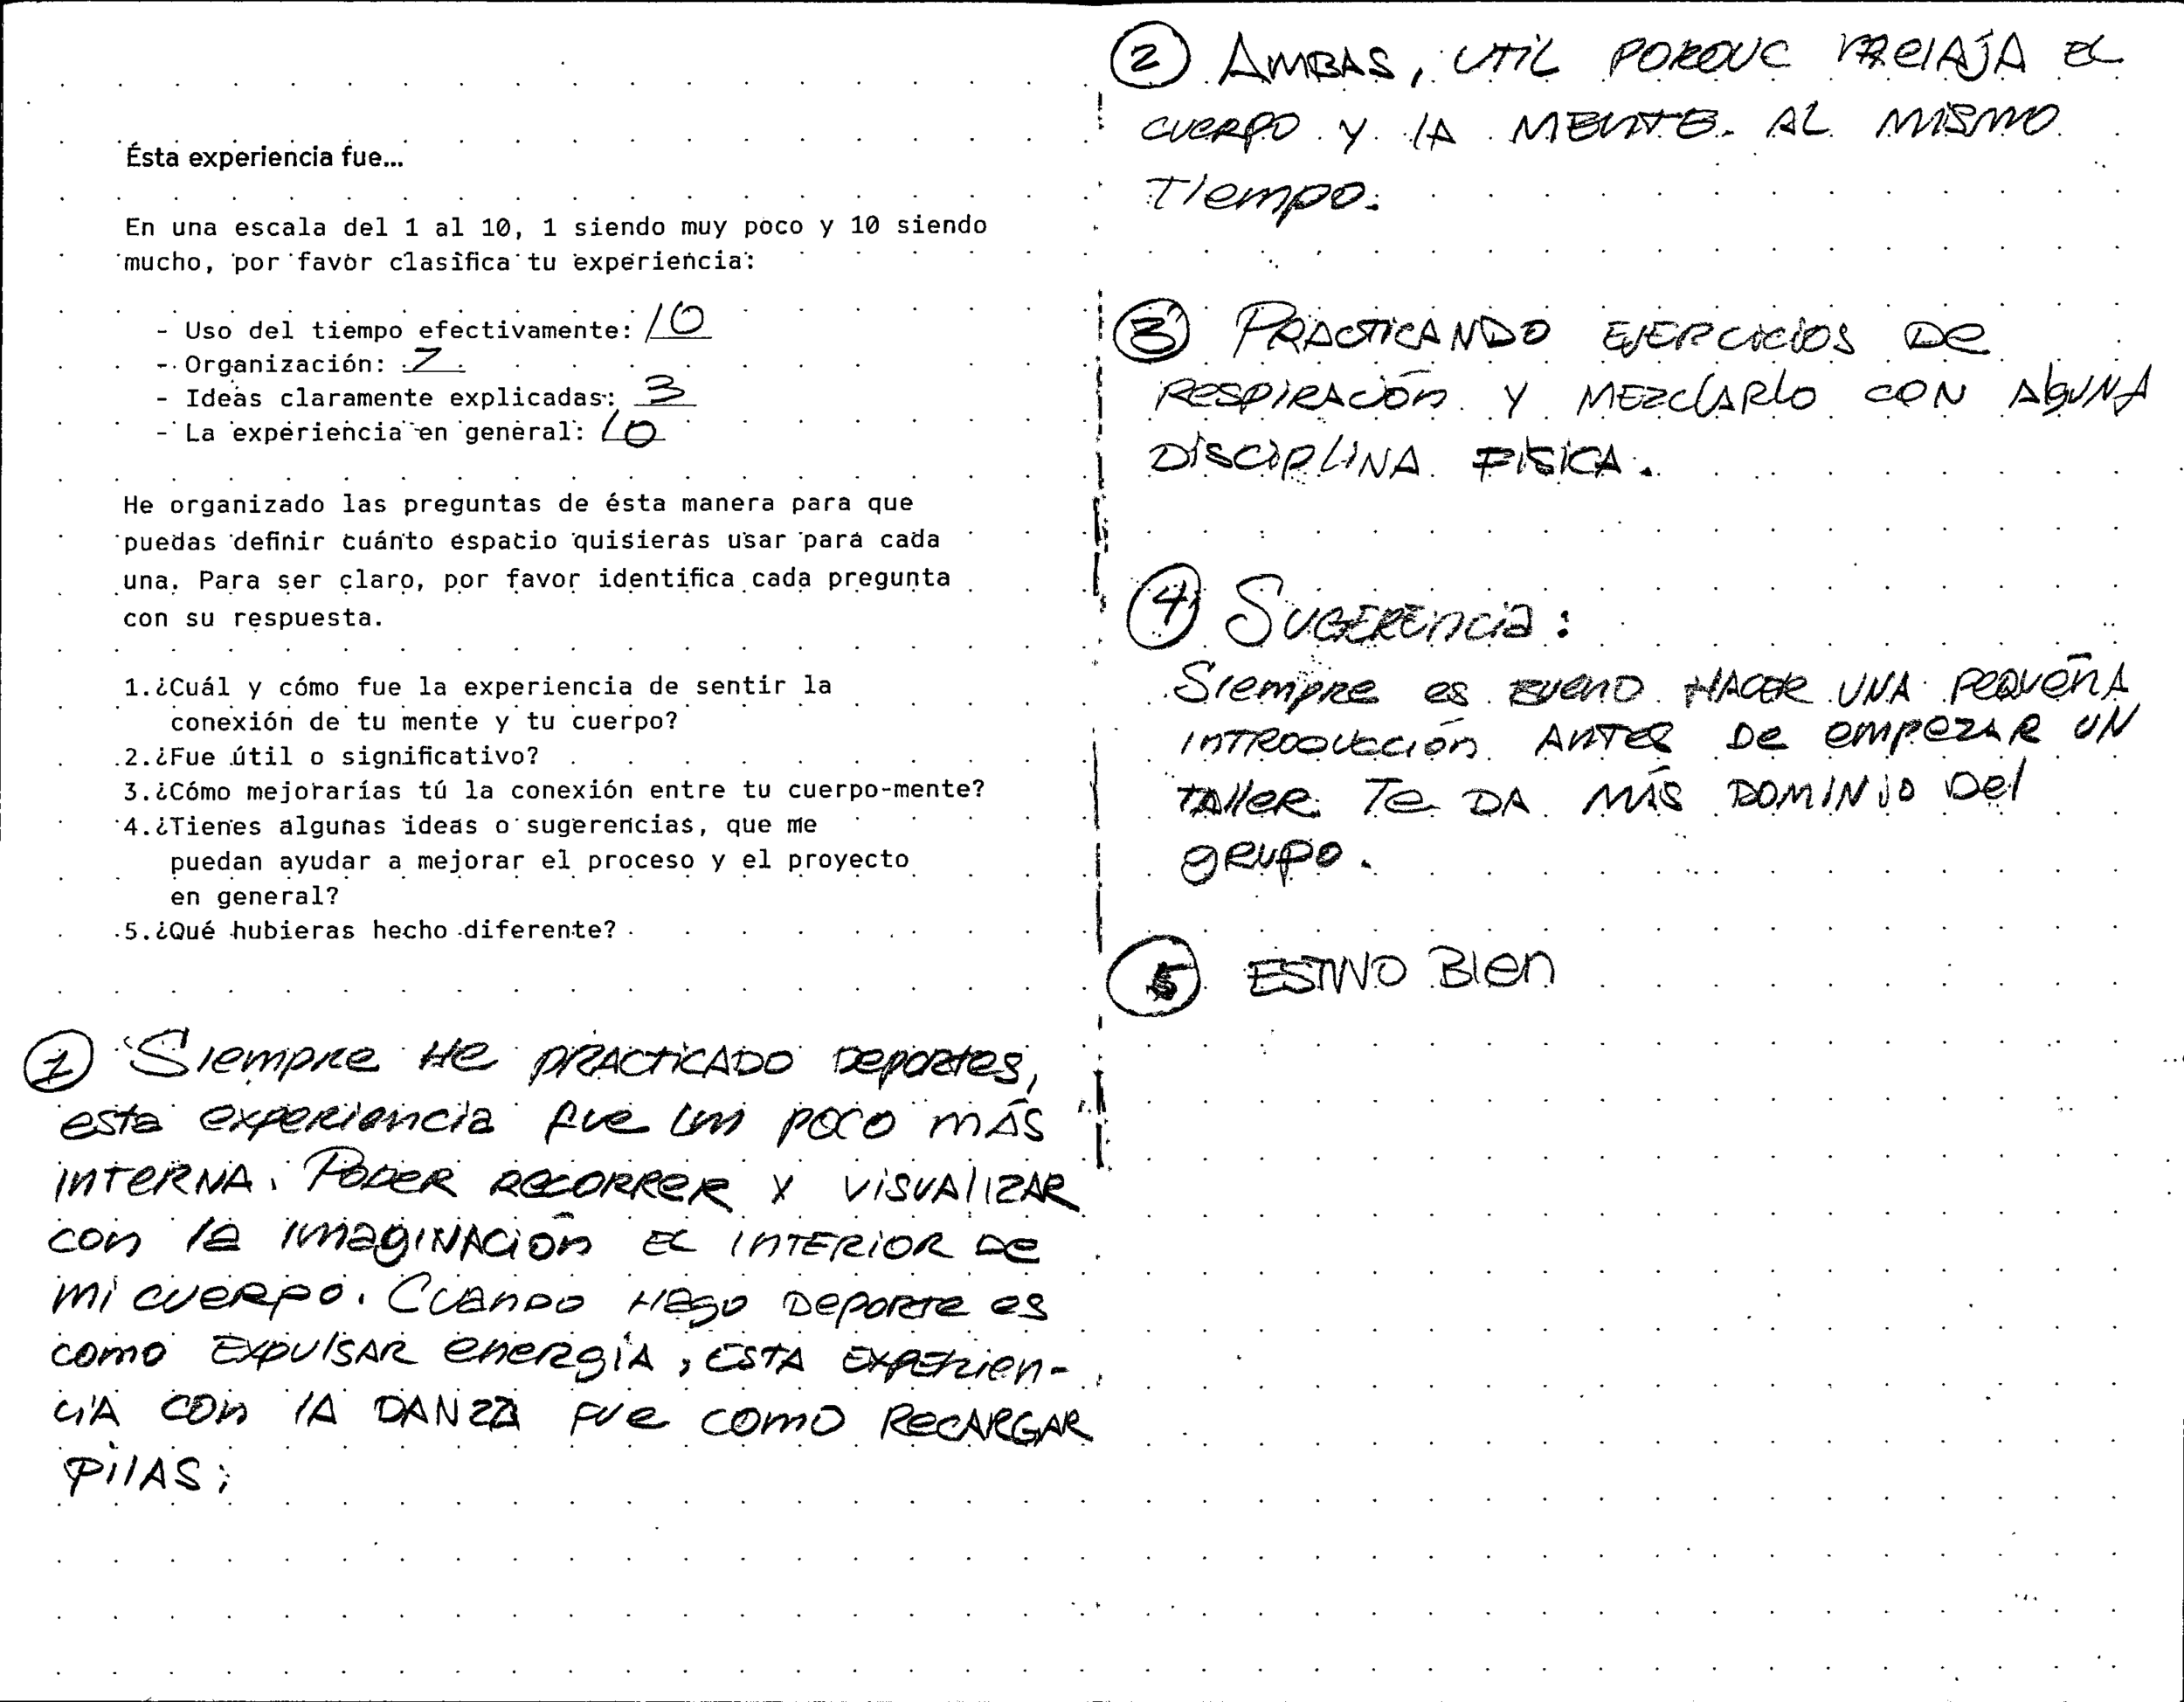 Ésta experiencia fue...
En una escala del 1 al 10, 1 siendo muy poco y 10 siendo
mucho, por favor clasifica tu experiencia:
- Uso del tiempo efectivamente: 10
- Organización: 7
- Ideas claramente explicadas: 3
- La experiencia en general: 10
He organizado las preguntas de ésta manera para que
puedas definir cuánto espacio quisieras usar para cada
una. Para ser claro, por favor identifica cada pregunta
con su respuesta.
1.¿Cuál y cómo fue la experiencia de sentir la
conexión de tu mente y tu cuerpo?
2.¿Fue útil o significativo?
3.¿Cómo mejorarías tú la conexión entre tu cuerpo-mente?
4.¿Tienes algunas ideas o sugerencias, que me
puedan ayudar a mejorar el proceso y el proyecto
en general?
5.¿Qué hubieras hecho diferente?
1 Siempre He PRACTICADO Deportes,
esta experiencia fue un poco más
INTERNA. PODER RECORRER Y VISUALIZAR
con la imagiNAción EL INTERIOR De
mi cuerpo. Cuando Hago Deporte es
como EXPULSAR energía, ESTA EXPERien-
ciA con lA DANZA fue como RecARGAR
PilAS;
2 AMBAS, UTIL PORQUE RELAJA EL
cuerpo Y lA MENTE. AL MISMO
Tiempo.
3 PRACTICANDO EJERCICIOS De
RESPIRACIÓN Y MEZCLARLO CON AlgUNA
DISCIPLINA FISICA.
4 SUGERENCIA:
Siempre es BUENO HACER UNA PEQUEÑA
INTRODUCCIÓN ANTES De empezAR UN
TAlleR. Te DA MÁS DOMINIO Del
gRUPO.
5 ESTUVO Bien